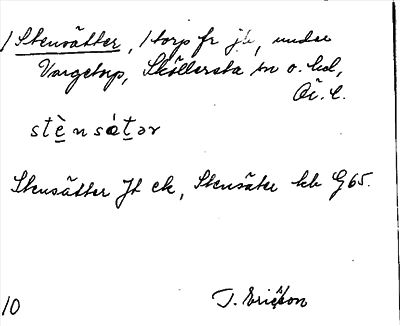 1 Stensätter, 1 torp fr jb, under
Vargetorp, Sköllersta sn o. hd,
Ör. l.
stὲnsätər
Stensätter Jt ek, Stensäter kb G65.
10 T. Ericsson